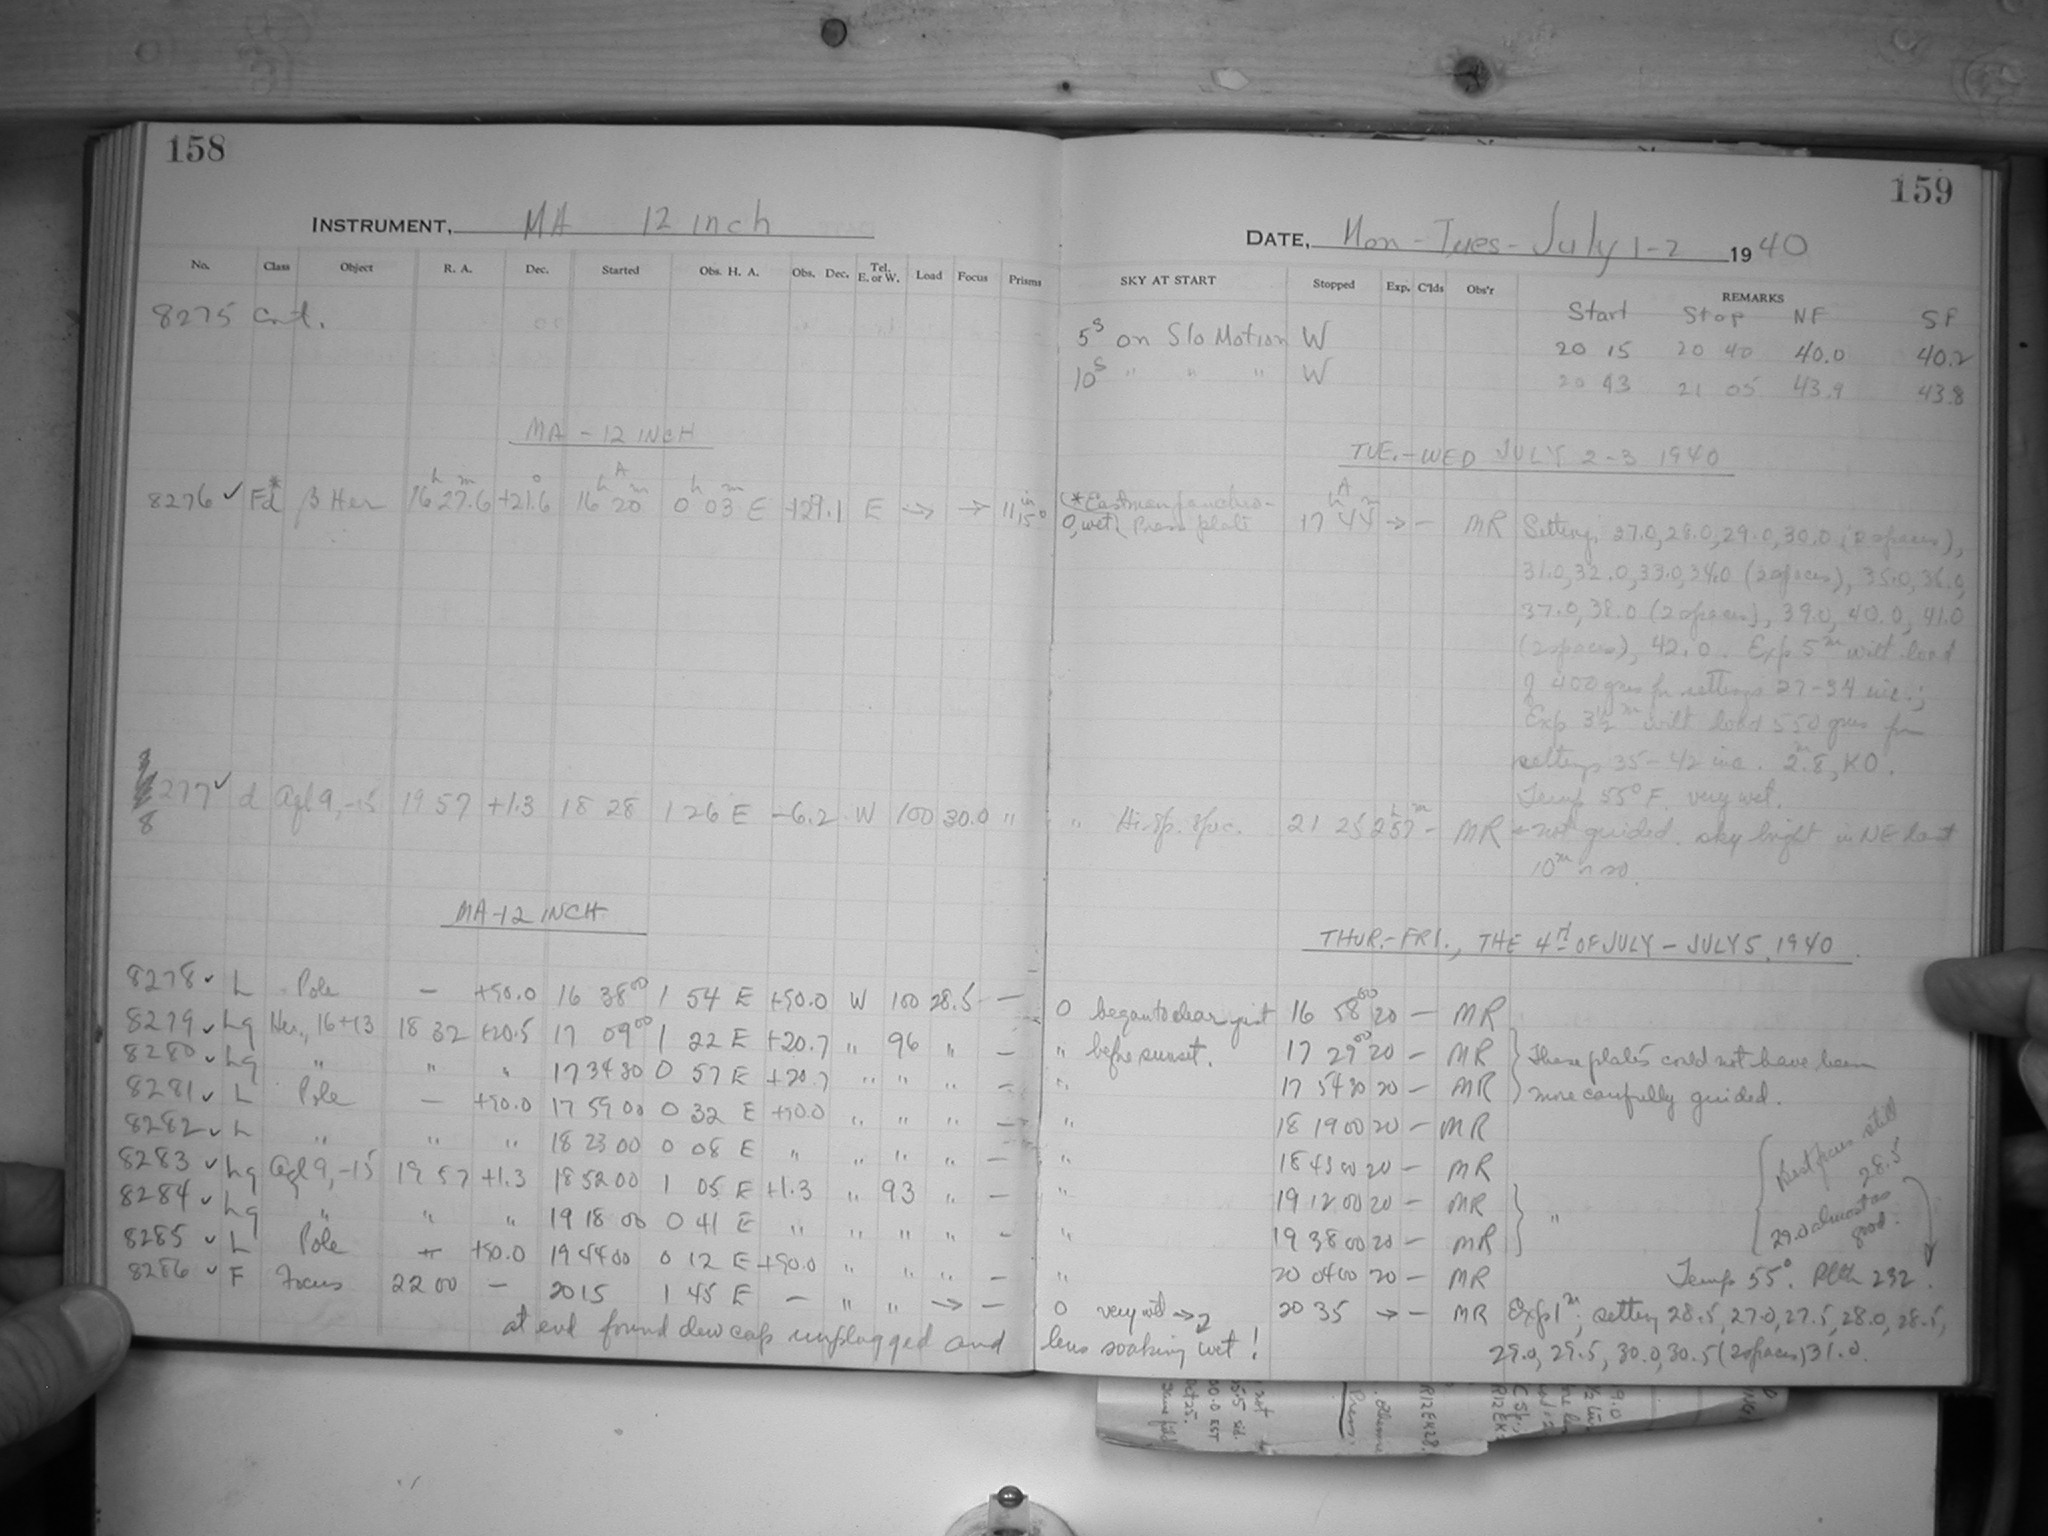 158
INSTRUMENT, MA 12 inch
No. Class Object R. A. Dec. Started Obs. H. A. Obs. Dec. Tel. E. or W. Load Focus Prisms
8275 Cont.
MA - 12 INCH
8276 ✓ Fd* β Her 16h 27.6m +21.6° 16h 20m A 0h 03m E +29.1 E → → 11in 15°
8277 ✓ d Aql 9, -15 19 57 +1.3 18 28 1 26 E -6.2 W 100 30.0 "
MA-12 INCH
8278 ✓ L Pole - +90.0 16 38 00 1 54 E +90.0 W 100 28.5 -
8279 ✓ Lg Her, 16+13 18 32 +20.5 17 09 00 1 22 E +20.7 " 96 " -
8280 ✓ Lg " " " 17 34 30 0 57 E +20.7 " " " -
8281 ✓ L Pole - +90.0 17 59 00 0 32 E +90.0 " " " -
8282 ✓ L " " " 18 23 00 0 08 E " " " " -
8283 ✓ Lg Aql 9, -15 19 57 +1.3 18 52 00 1 05 E +1.3 " 93 " -
8284 ✓ Lg " " " 19 18 00 0 41 E " " " " -
8285 ✓ L Pole - +90.0 19 44 00 0 12 E +90.0 " " " -
8286 ✓ F Focus 22 00 - 20 15 1 45 E - " " → -
at end found dew cap unplugged and lens soaking wet!
159
DATE, Mon - Tues - July 1-2 1940
SKY AT START Stopped Exp. C'lds Obs'r REMARKS
Start Stop NF SF
5s on Slo Motion W 20 15 20 40 40.0 40.2
10s " " " W 20 43 21 05 43.9 43.8
TUE.-WED JULY 2-3 1940
(*Eastman panchro-
0, wet Press plate 17h 44m A → - MR Settings 27.0, 28.0, 29.0, 30.0 (2 spaces),
31.0, 32.0, 33.0, 34.0 (2 spaces), 35.0, 36.0,
37.0, 38.0 (2 spaces), 39.0, 40.0, 41.0
(2 spaces), 42.0. Exp 5m with load
of 400 gms for settings 27-34 inc.;
Exp 3½m with load 550 gms for
settings 35-42 inc. 2.8m, KO.
Temp 55° F. very wet.
" Hi. sp. spec. 21 25 2h 57m - MR ← not guided. sky bright in NE last
10m or so.
THUR.-FRI., THE 4TH OF JULY - JULY 5, 1940
0 began to clear just 16 58 00 20 - MR
" before sunset. 17 29 00 20 - MR } These plates could not have been
" 17 54 30 20 - MR } more carefully guided.
" 18 19 00 20 - MR
" 18 43 00 20 - MR
" 19 12 00 20 - MR } "
" 19 38 00 20 - MR
Best focus still
28.5
29.0 almost as
good.
" 20 04 00 20 - MR Temp 55°. Plth 232.
0 very wet → 2 20 35 → - MR Exp 1m; setting 28.5, 27.0, 27.5, 28.0, 28.5,
29.0, 29.5, 30.0, 30.5 (2 spaces) 31.0.